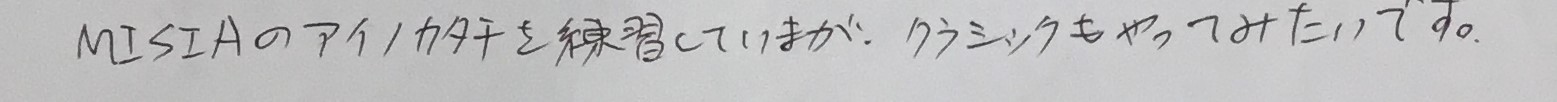 MISIAのアイノカタチを練習していまが、クラシックもやってみたいです。